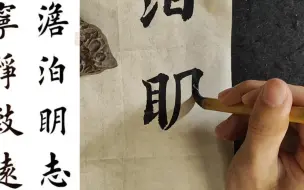 澹泊明志
寧靜致遠
泊明